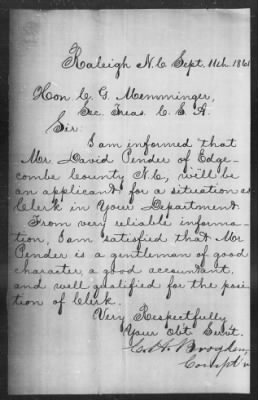 Raleigh N.C. Sept. 11th. 1861
Hon. C. G. Memminger,
Sec. Treas. C. S. A.
Sir:
I am informed that
Mr. David Pender of Edge-
combe County N.C., will be
an applicant for a situation as
Clerk in Your Department.
From very reliable informa-
tion, I am satisfied that Mr
Pender is a gentleman of good
character, a good accountant,
and well qualified for the posi-
tion of Clerk.
Very Respectfully
Your Obt. Servt.
C. H. Brogden,
Compt'r